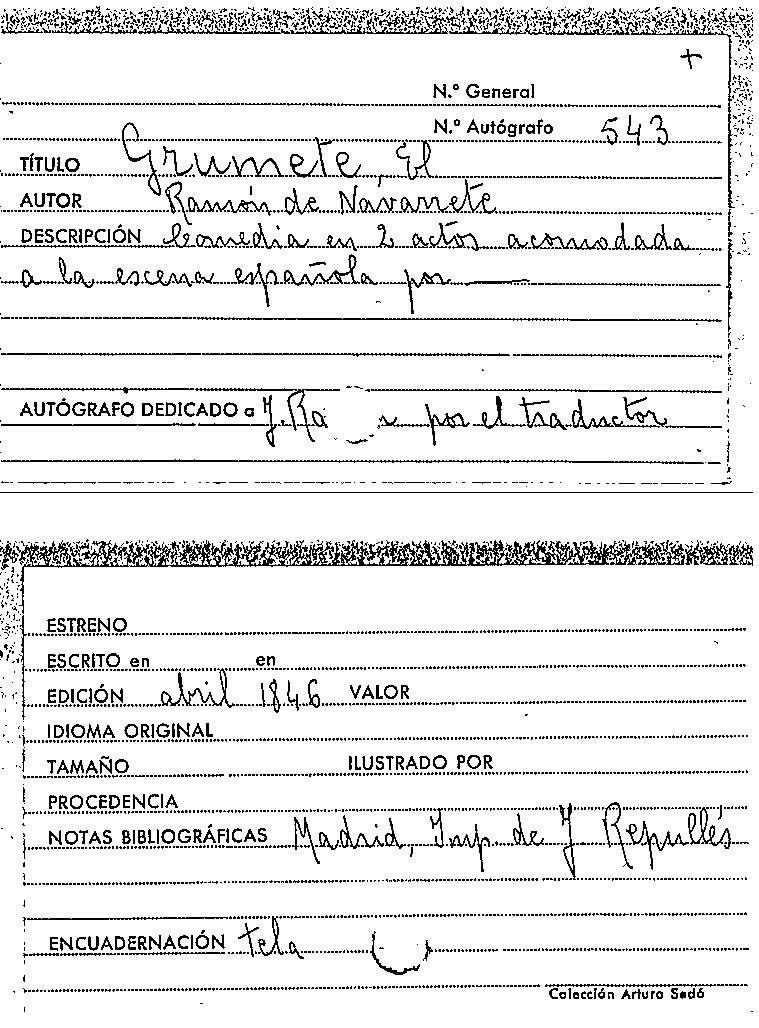 +
N.º General
N.º Autógrafo 543
TÍTULO Grumete, El
AUTOR Ramón de Navarrete
DESCRIPCIÓN Comedia en 2 actos acomodada
a la escena española por ——
AUTÓGRAFO DEDICADO a J. Ra por el traductor
ESTRENO
ESCRITO en en
EDICIÓN abril 1846 VALOR
IDIOMA ORIGINAL
TAMAÑO ILUSTRADO POR
PROCEDENCIA
NOTAS BIBLIOGRÁFICAS Madrid, Imp. de J Repullés
ENCUADERNACIÓN tela
Colección Arturo Sedó